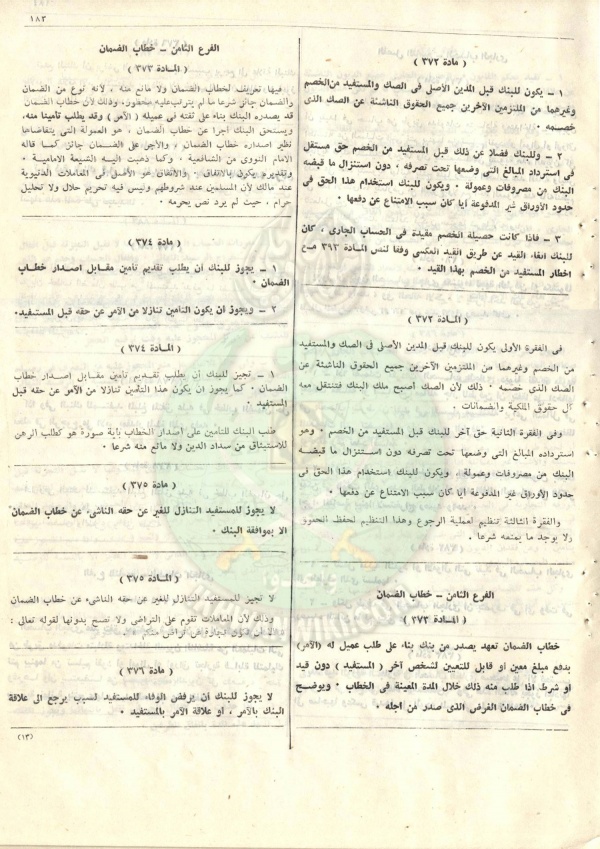 ١٨٣
( مادة ٣٧٢ )
١ – يكون للبنك قبل المدين الأصلى فى الصك والمستفيد من الخصم
وغيرهما من الملتزمين الآخرين جميع الحقوق الناشئة عن الصك الذى
خصمه ٠
٢ – وللبنك فضلا عن ذلك قبل المستفيد من الخصم حق مستقل
فى استرداد المبالغ التى وضعها تحت تصرفه ، دون استنزال ما قبضه
البنك من مصروفات وعمولة ٠ ويكون للبنك استخدام هذا الحق فى
حدود الأوراق غير المدفوعة أيا كان سبب الامتناع عن دفعها ٠
٣ – فاذا كانت حصيلة الخصم مقيدة فى الحساب الجارى ، كان
للبنك الغاء القيد عن طريق القيد العكسى وفقا لنص المادة ٣٩٣ مع
اخطار المستفيد من الخصم بهذا القيد ٠
( المادة ٣٧٢ )
فى الفقرة الأولى يكون للبنك قبل المدين الأصلى فى الصك والمستفيد
من الخصم وغيرهما من الملتزمين الآخرين جميع الحقوق الناشئة عن
الصك الذى خصمه ٠ ذلك لأن الصك أصبح ملك البنك فتنتقل معه
كل حقوق الملكية والضمانات ٠
وفى الفقرة الثانية حق آخر للبنك قبل المستفيد من الخصم ٠ وهو
استرداده المبالغ التى وضعها تحت تصرفه دون استنزال ما قبضه
البنك من مصروفات وعمولة ، ويكون للبنك استخدام هذا الحق فى
حدود الأوراق غير المدفوعة أيا كان سبب الامتناع عن دفعها ٠
والفقرة الثالثة تنظيم لعملية الرجوع وهذا التنظيم لحفظ الحقوق
ولا يوجد ما يمنعه شرعا ٠
الفرع الثامن – خطاب الضمان
( مادة ٣٧٣ )
خطاب الضمان تعهد يصدر من بنك بناء على طلب عميل له (الآمر)
بدفع مبلغ معين أو قابل للتعيين لشخص آخر ( المستفيد ) دون قيد
أو شرط اذا طلب منه ذلك خلال المدة المعينة فى الخطاب ٠ ويوضح
فى خطاب الضمان الغرض الذى صدر من أجله ٠
الفرع الثامن – خطاب الضمان
( المادة ٣٧٣ )
فيها تعريف لخطاب الضمان ولا مانع منه ، لأنه نوع من الضمان
والضمان جائز شرعا ما لم يترتب عليه محظور، وذلك لأن خطاب الضمان
قد يصدره البنك بناء على ثقته فى عميله (الآمر) وقد يطلب تأمينا منه،
ويستحق البنك أجرا عن خطاب الضمان ، هو العمولة التى يتقاضاها
نظير اصداره خطاب الضمان ، والأجر على الضمان جائز كما قاله
الامام النووى من الشافعية ٠ وكما ذهبت اليه الشيعة الامامية ٠
وتقديره يكون بالاتفاق ٠ والاتفاق هو الأصل فى المعاملات الدنيوية
عند مالك لأن المسلمين عند شروطهم وليس فيه تحريم حلال ولا تحليل
حرام ، حيث لم يرد نص بحرمه ٠
( مادة ٣٧٤ )
١ – يجوز للبنك أن يطلب تقديم تأمين مقابل اصدار خطاب
الضمان ٠
٢ – ويجوز أن يكون التأمين تنازلا من الآمر عن حقه قبل المستفيد٠
( المادة ٣٧٤ )
١ – تجيز للبنك أن يطلب تقديم تأمين مقابل اصدار خطاب
الضمان ٠ كما يجوز أن يكون هذا التأمين تنازلا من الآمر عن حقه قبل
المستفيد ٠
طلب البنك للتأمين على اصدار الخطاب بأية صورة هو كطلب الرهن
للاستيثاق من سداد الدين ولا مانع منه شرعا ٠
( مادة ٣٧٥ )
لا يجوز للمستفيد التنازل للغير عن حقه الناشىء عن خطاب الضمان
الا بموافقة البنك ٠
( المادة ٣٧٥ )
لا تجيز للمستفيد التنازل للغير عن حقه الناشىء عن خطاب الضمان
وذلك لأن المعاملات تقوم على التراضى ولا تصح بدونها لقوله تعالى :
« الا أن تكون تجارة عن تراض منكم » ٠
( مادة ٣٧٦ )
لا يجوز للبنك أن يرفض الوفاء للمستفيد لسبب يرجع الى علاقة
البنك بالآمر ، أو علاقة الآمر بالمستفيد ٠
(١٣)